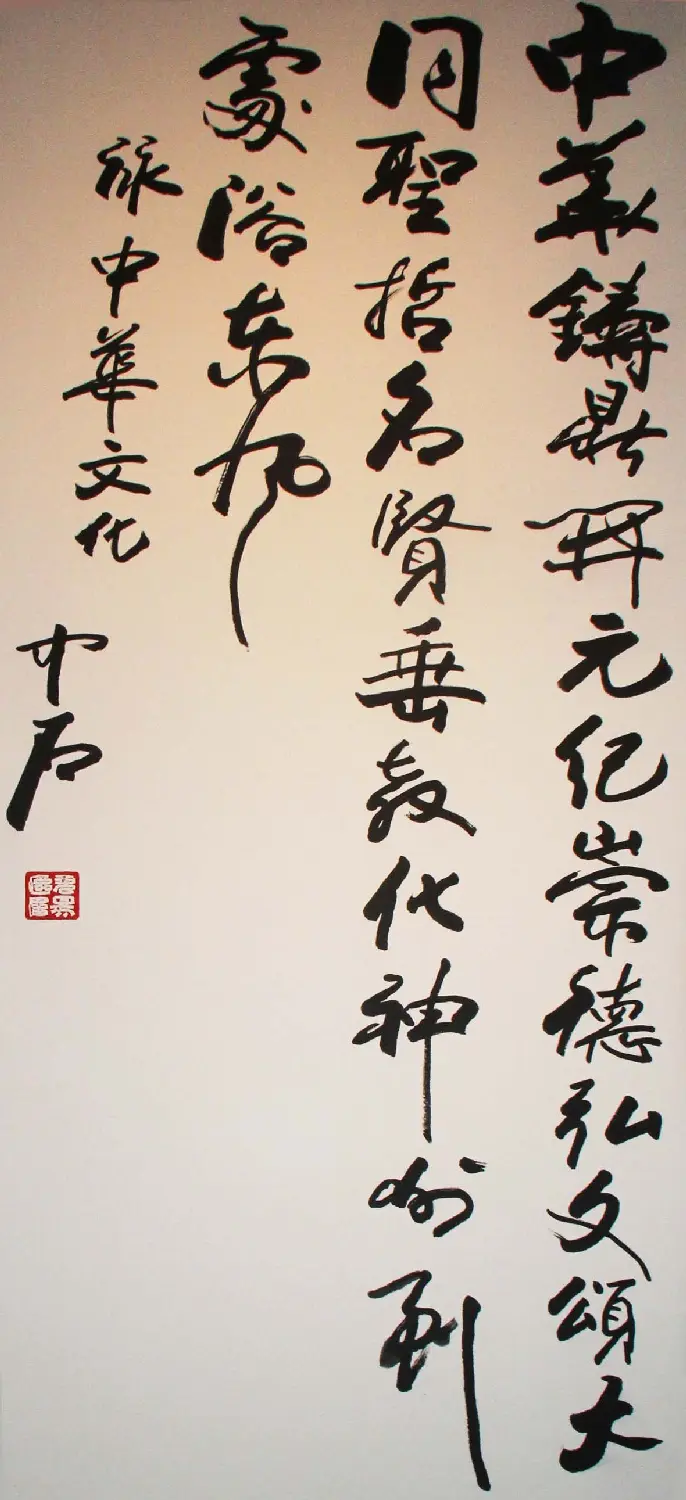 中華鑄鼎開元紀崇德弘文頌大
同聖哲名賢垂教化神州到
處浴東風
中華文化
中石